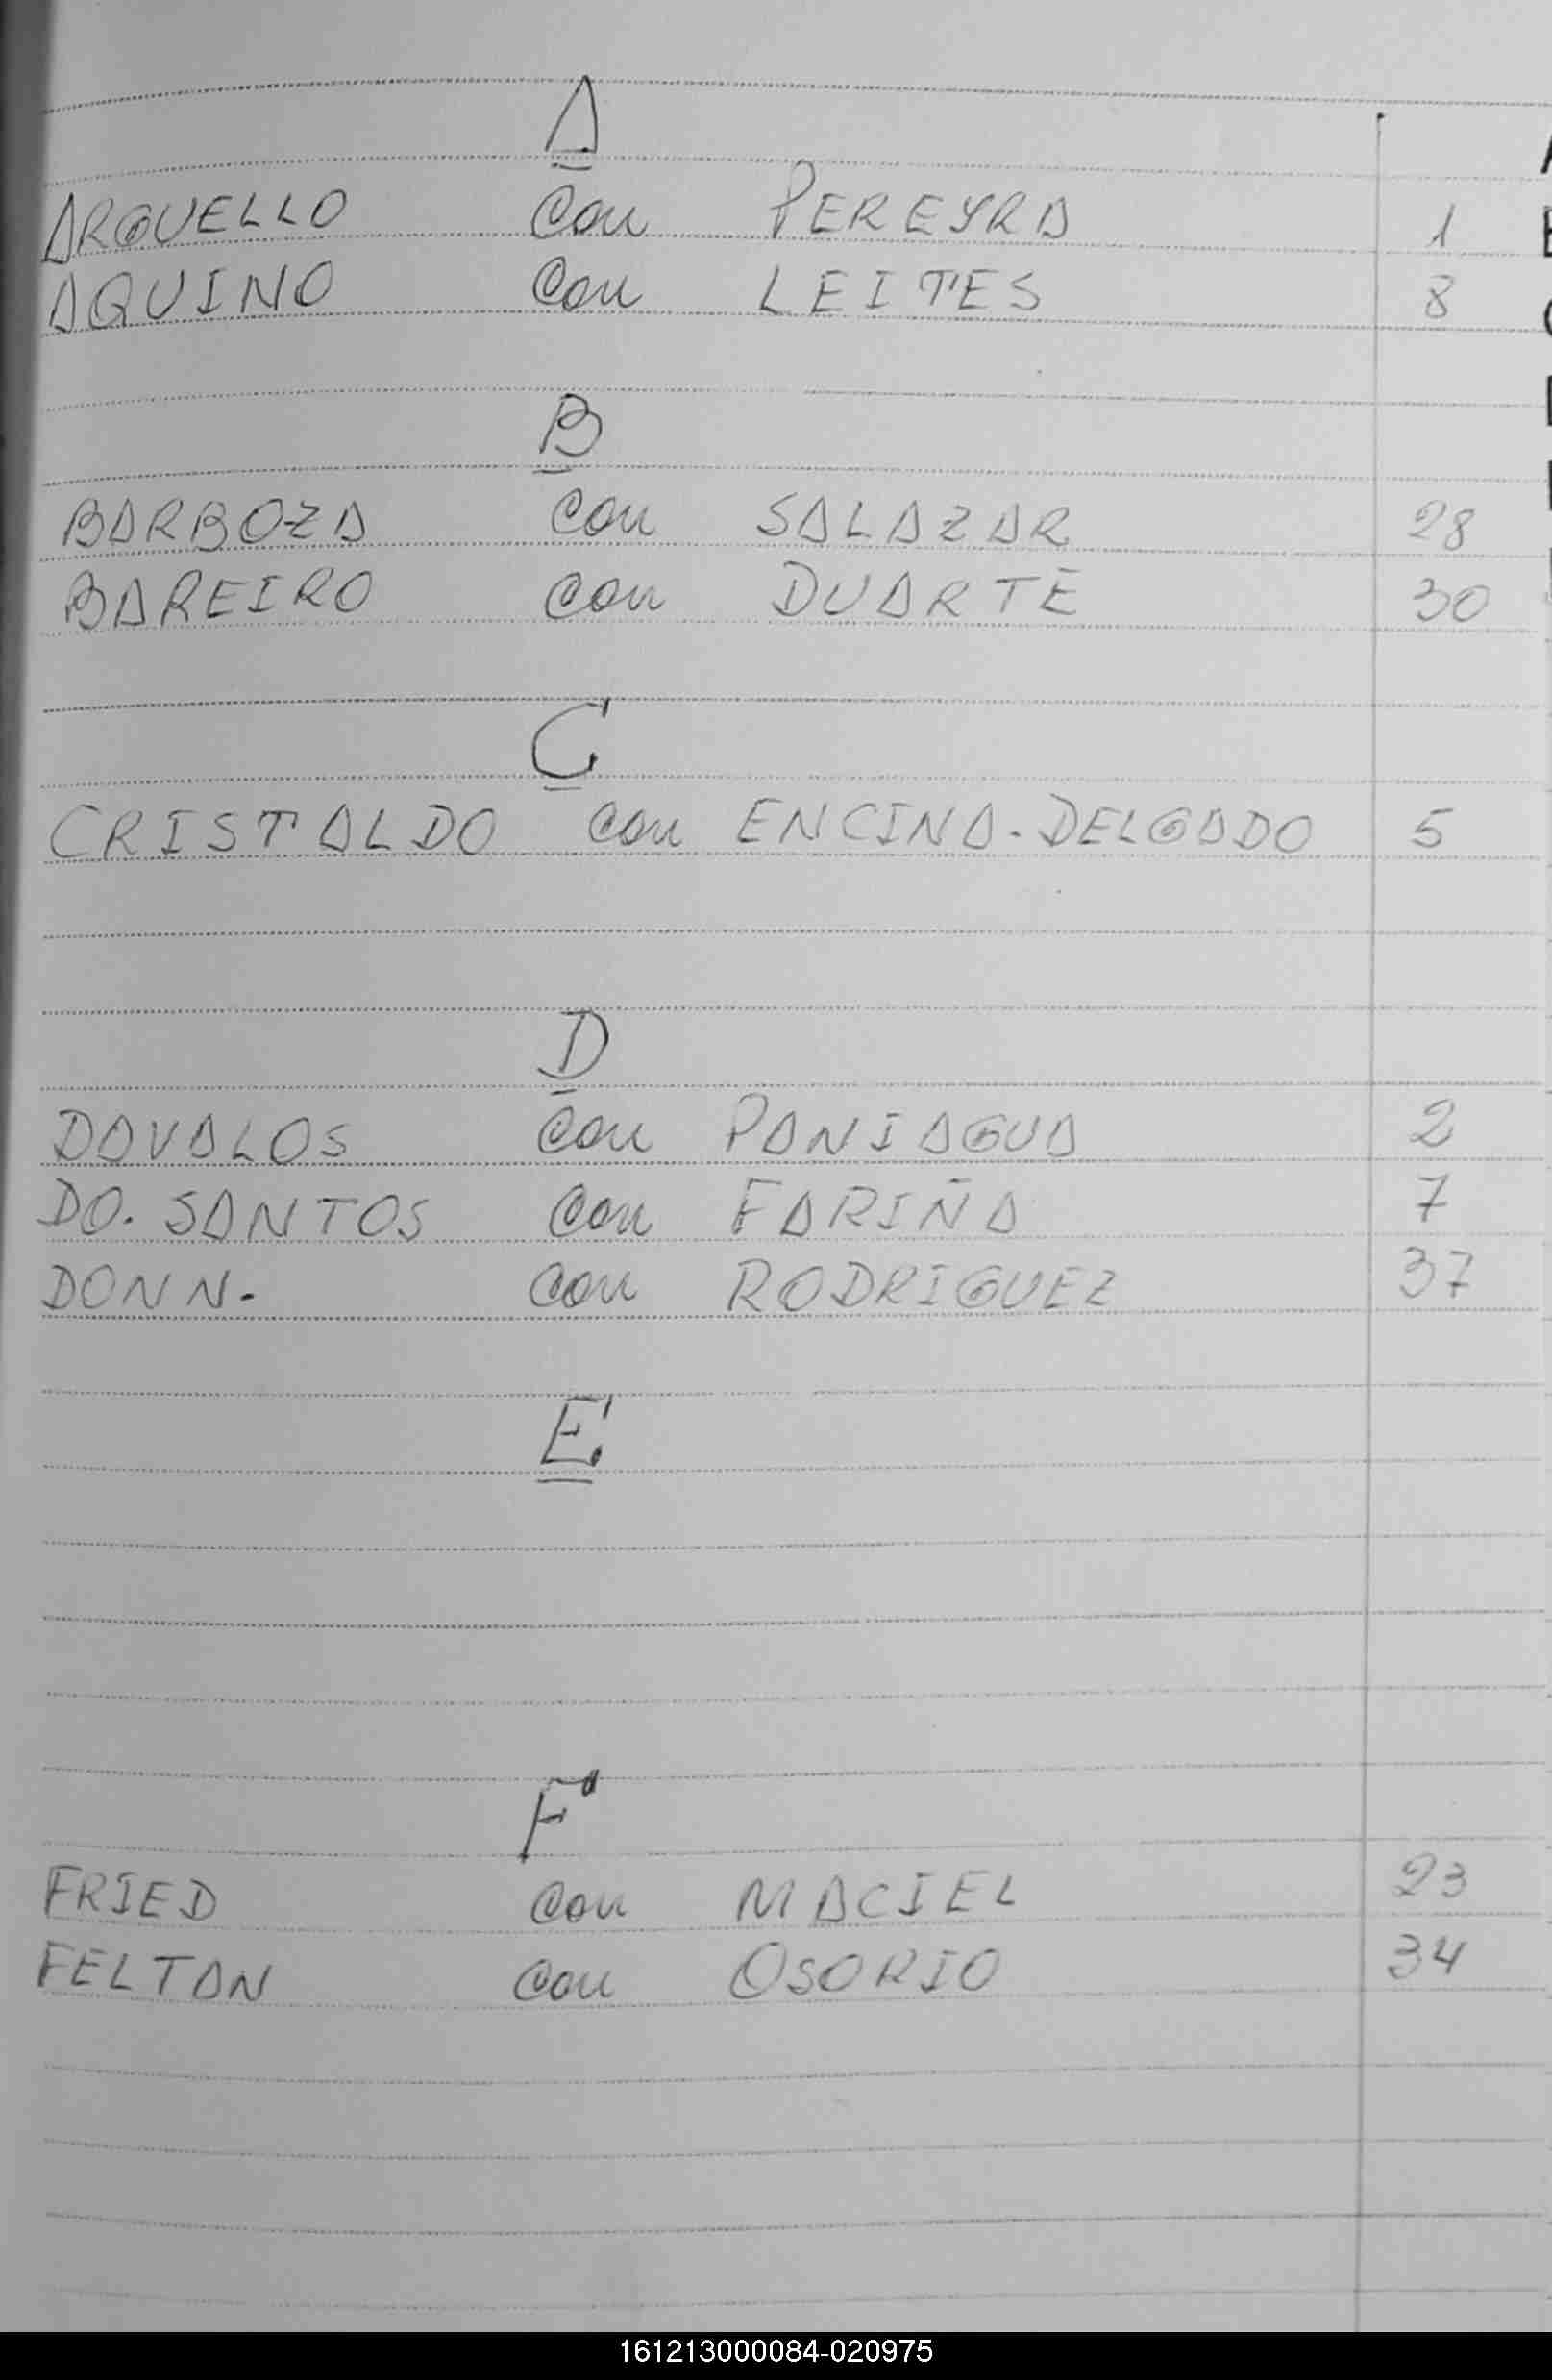 A
ARGUELLO con PEREYRA 1
AQUINO con LEITES 8
B
BARBOZA con SALAZAR 28
BAREIRO con DUARTE 30
C
CRISTALDO con ENCINA-DELGADO 5
D
DAVALOS con PANIAGUA 2
DO. SANTOS con FARIÑA 7
DONN. con RODRIGUEZ 37
E
F
FRIED con MACIEL 23
FELTAN con OSORIO 34
161213000084-020975